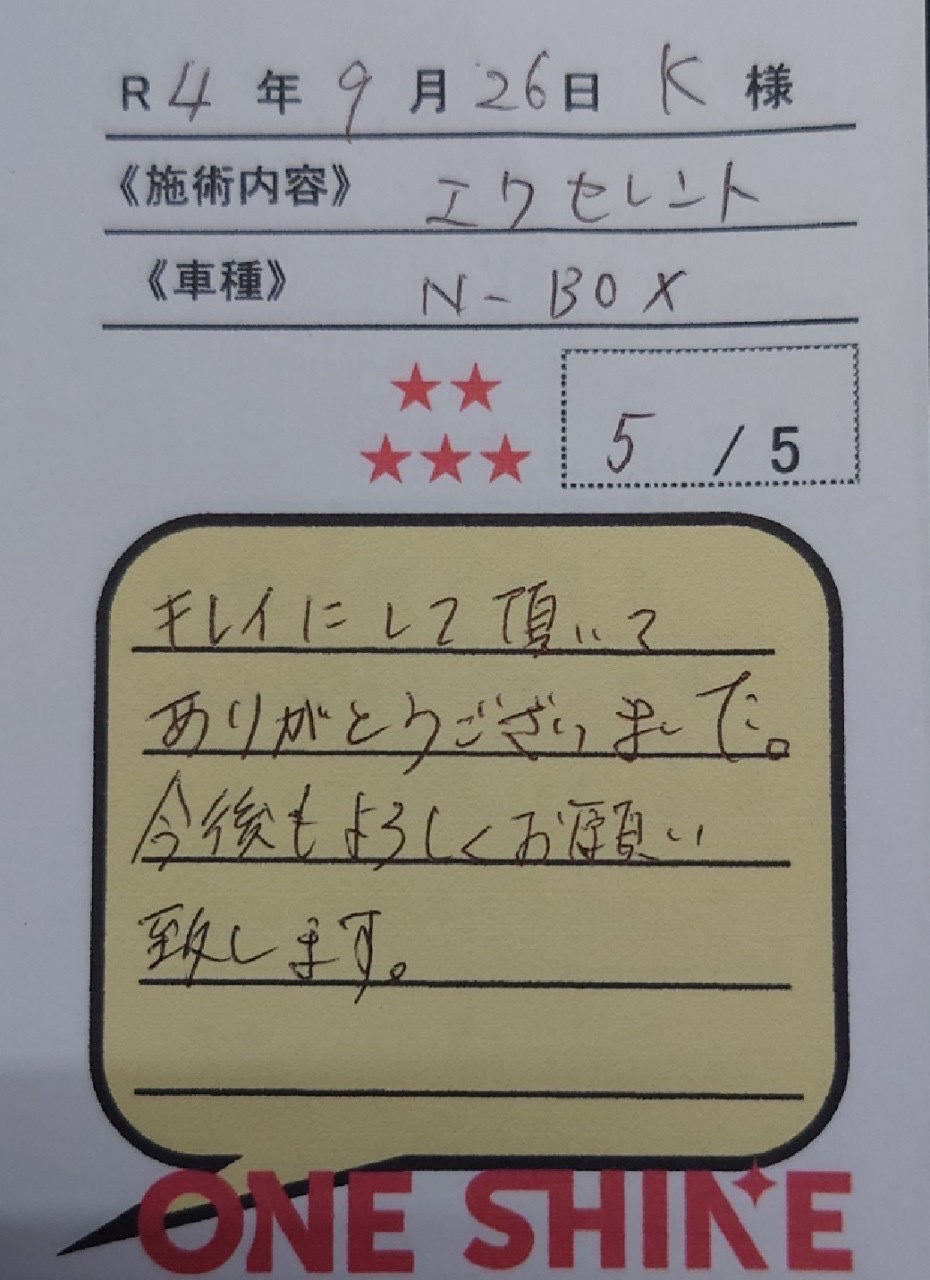 R4年9月26日 K様
《施術内容》 エクセレント
《車種》 N-BOX
★★
★★★ 5/5
キレイにして頂いて
ありがとうございました。
今後もよろしくお願い
致します。
ONE SHINE